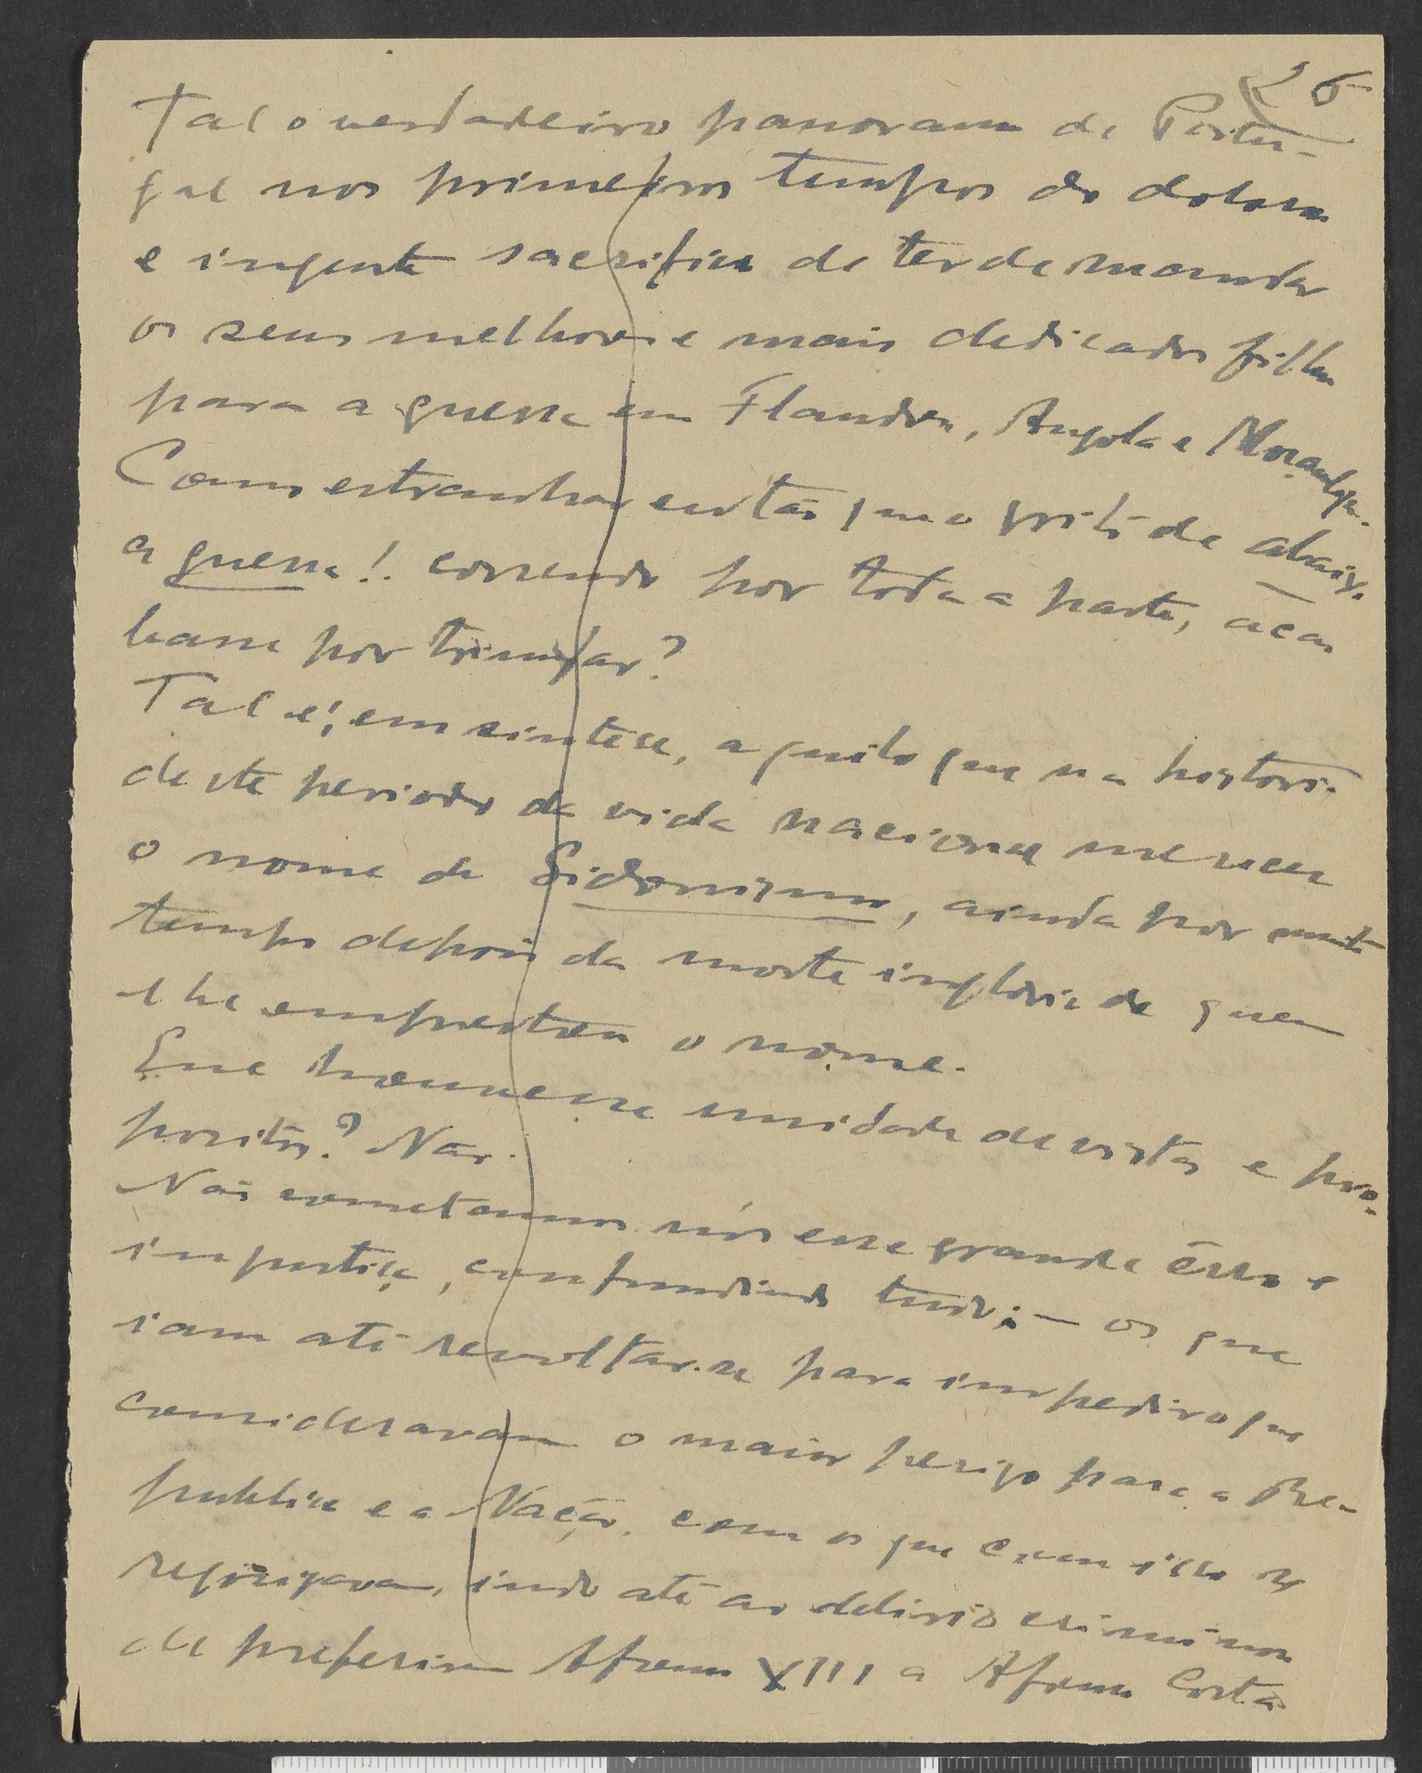 26
Tal o verdadeiro panorama de Portu-
gal nos primeiros tempos do doloroso
e ingente sacrificio de ter de mandar
os seus melhores e mais dedicados filhos
para a guerra em Flandres, Angola e Moçambique.
Como estranhar então que o grito de abaixo
a guerra!. correndo por toda a parte, aca-
basse por triunfar?
Tal é, em sintese, aquilo que na historia
deste periodo da vida nacional merece
o nome de Sidonismo, ainda por muito
tempo depois da morte inglória de quem
lhe emprestou o nome.
Que houvesse unidade de vistas e pro-
positos? Não.
Não cometamos nós esse grande êrro e
injustiça, confundindo tudo: — os que
iam até revoltar-se para impedir o que
consideravam o maior perigo para a Re-
publica e a Nação, com os que com isso se
regosijavam, indo até ao delirio criminoso
de preferirem Afonso XIII a Afonso Costa